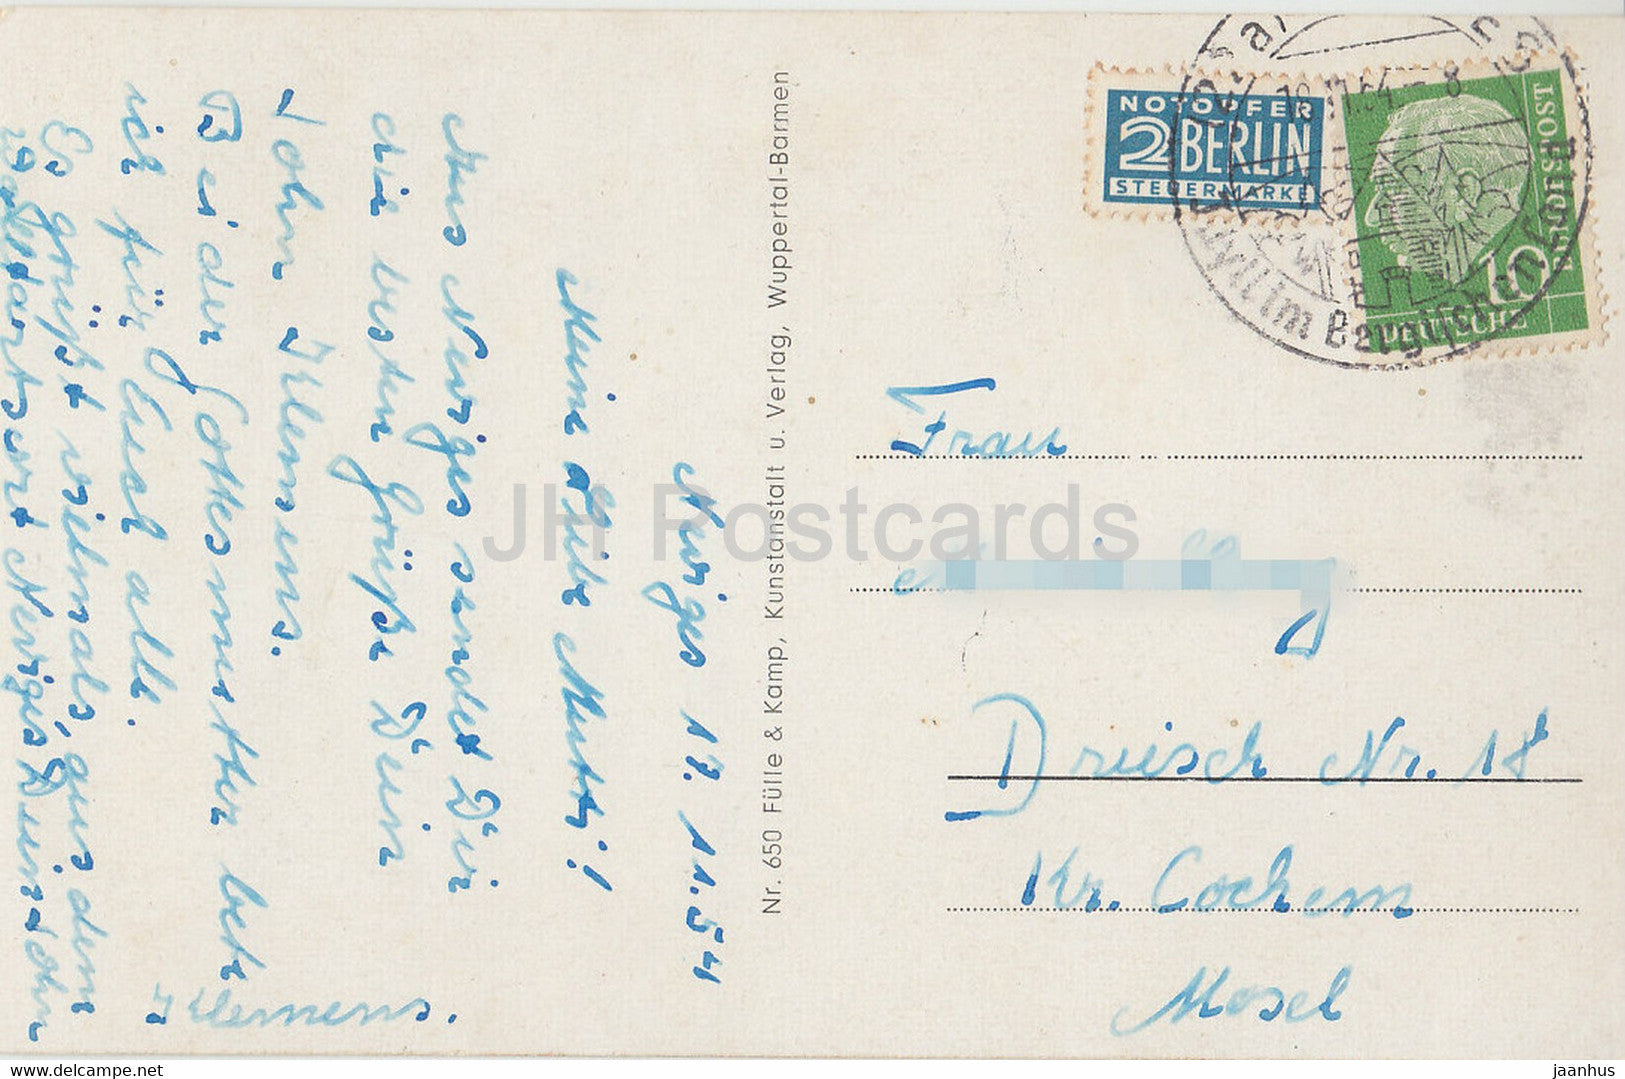 Neviges 17. 11. 54
Meine liebe Mutti!
Aus Neviges sendet Dir
die besten Grüße Dein
Sohn Klemens.
Bei der Gottesmutter bete
ich für Euch alle.
Es grüßt vielmals, aus dem
Wallfahrtsort Neviges Dein Sohn
Klemens.
Nr. 650 Fülle & Kamp, Kunstanstalt u. Verlag, Wuppertal-Barmen
NOTOPFER
2 BERLIN
STEUERMARKE
DEUTSCHE
BUNDESPOST
10
.11.54 - 8
Idyll im Bergischen
Frau
Driesch Nr. 18
Kr. Cochem
Mosel
JH Postcards
www.delcampe.net
jaanhus